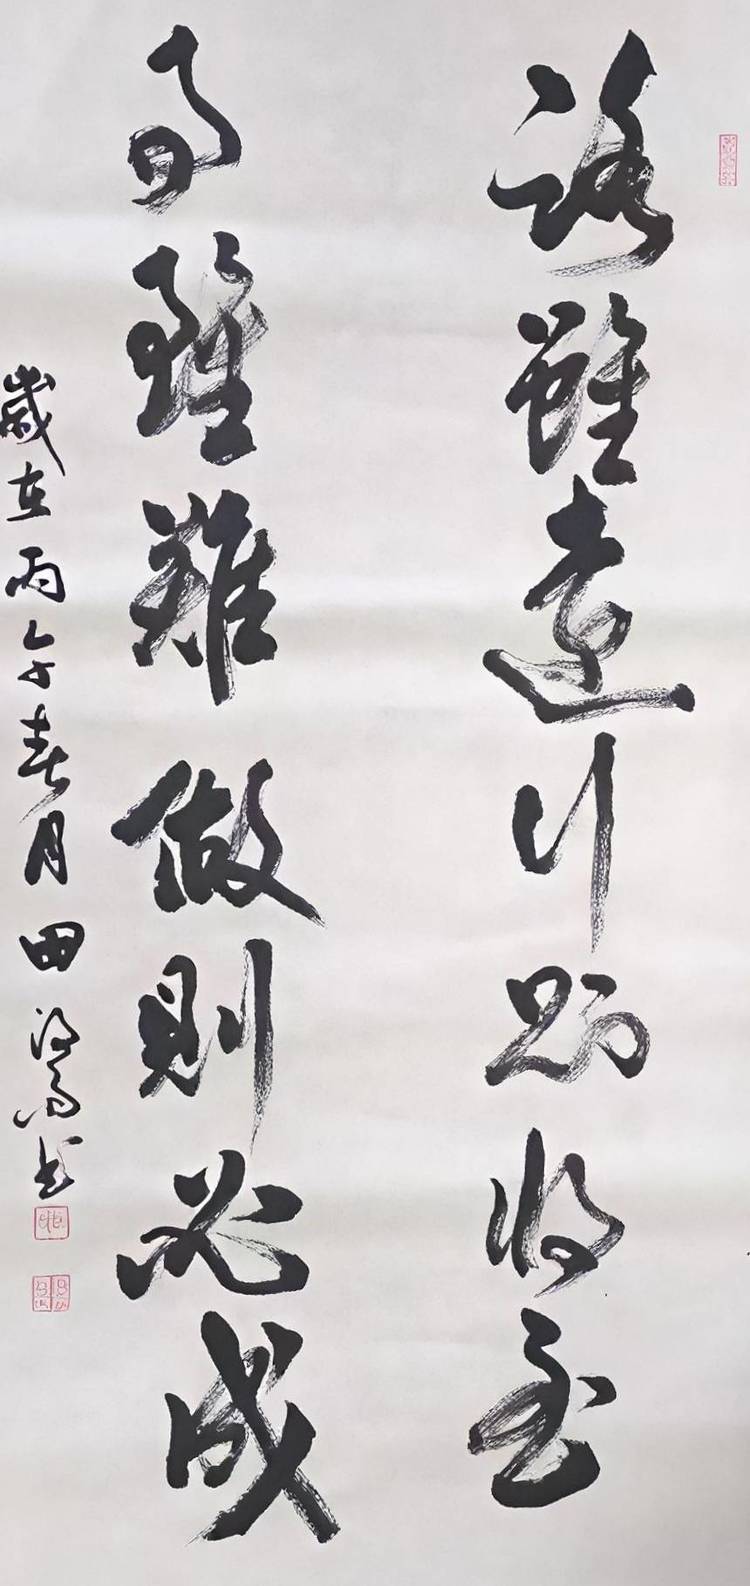 路雖遠行則将至
事雖難做則必成
歲在丙午春月田书